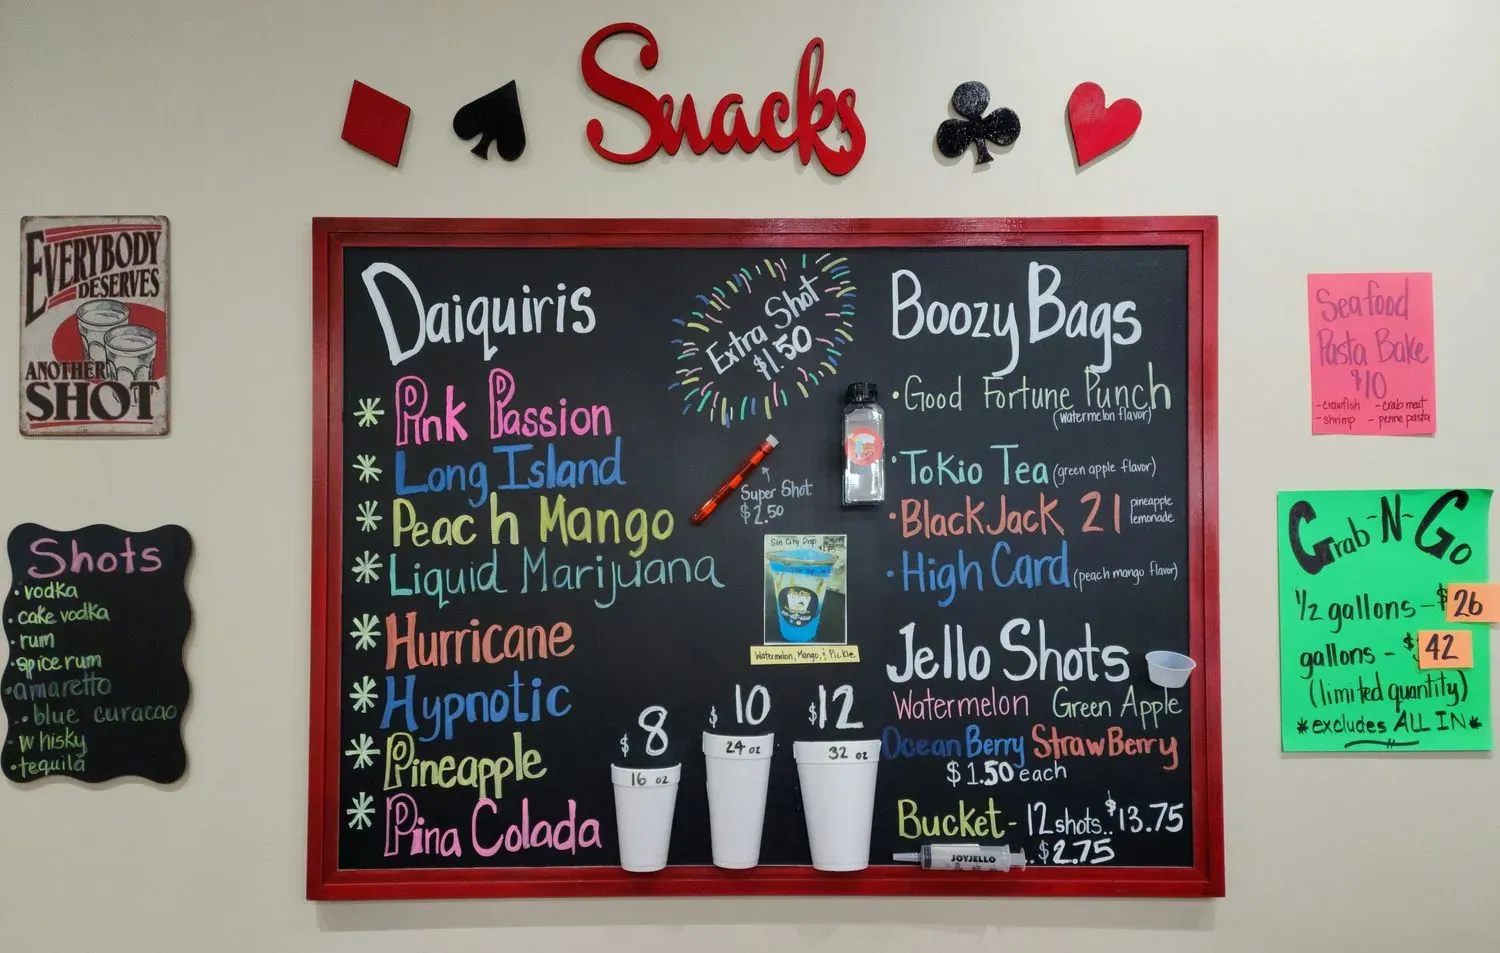 Snacks
EVERYBODY
DESERVES
ANOTHER
SHOT
Shots
• vodka
• cake vodka
• rum
• spice rum
• amaretto
• blue curacao
• whisky
• tequila
Daiquiris
* Pink Passion
* Long Island
* Peach Mango
* Liquid Marijuana
* Hurricane
* Hypnotic
* Pineapple
* Pina Colada
Extra Shot
$1.50
Super Shot
$2.50
Sin City Drip
Watermelon, Mango, & Pickle
$8
16 oz
$10
24 oz
$12
32 oz
Boozy Bags
• Good Fortune Punch
(watermelon flavor)
• Tokio Tea (green apple flavor)
• BlackJack 21 pineapple
lemonade
• High Card (peach mango flavor)
Jello Shots
Watermelon Green Apple
Ocean Berry StrawBerry
$1.50 each
Bucket - 12 shots.. $13.75
JOYJELLO .. $2.75
Seafood
Pasta Bake
$10
- crawfish - crab meat
- shrimp - penne pasta
Grab-N-Go
1/2 gallons - $26
gallons - $42
(limited quantity)
*excludes ALL IN*